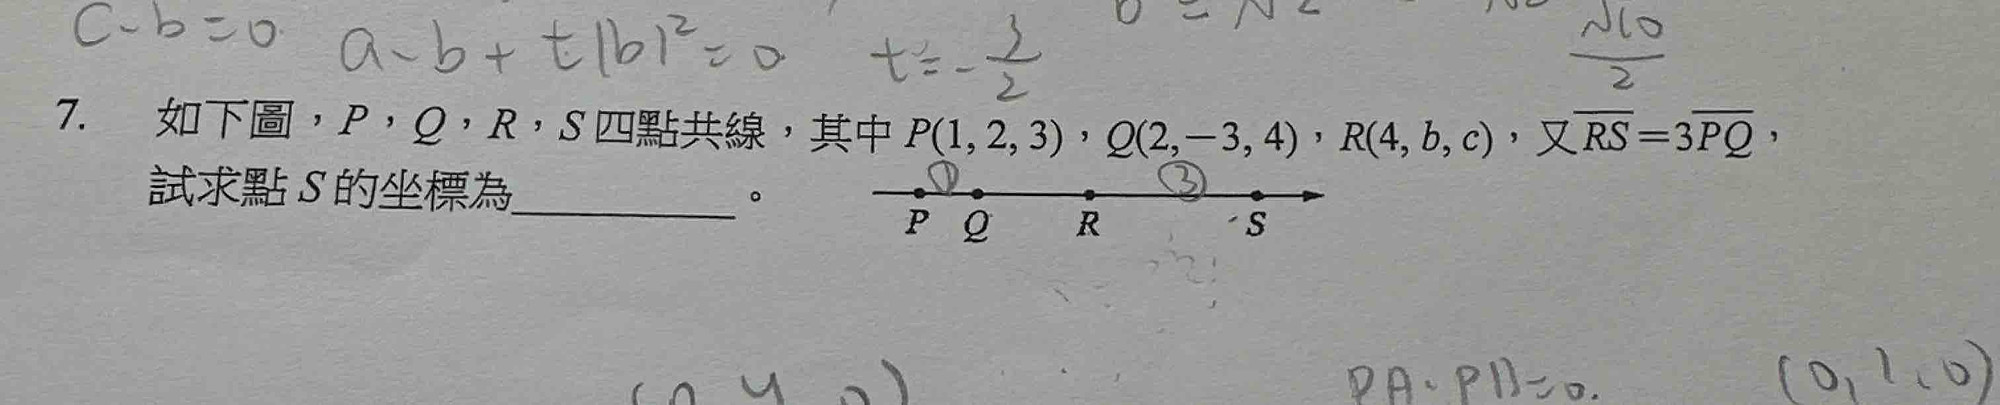 C-b=0
a-b+t|b|²=0
√10
2
7. 如下圖，P，Q，R，S四點共線，其中P(1, 2, 3)，Q(2,−3, 4)，R(4, b, c)，又RS=3PQ，
試求點S的坐標為__________。
① ③
P Q R S
PA·PB=0.
(0,1,0)